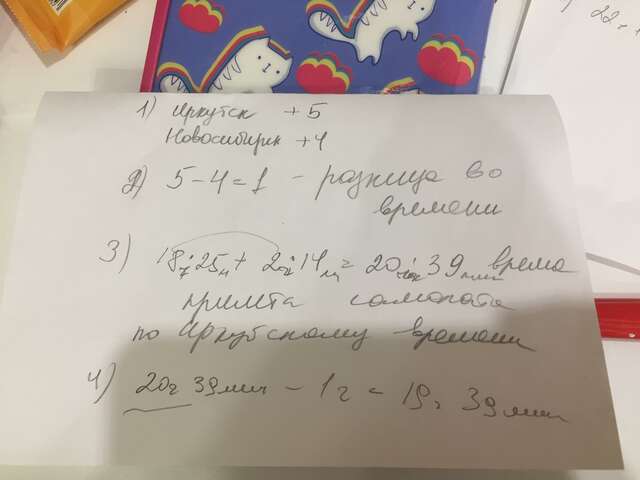 22
1) Иркутск +5
Новосибирск +4
2) 5-4=1 - разница во
времени
3) 18ч25м + 2ч14м = 20ч39мин время
прилёта самолёта
по Иркутскому времени
4) 20ч 39мин - 1ч = 19ч 39мин